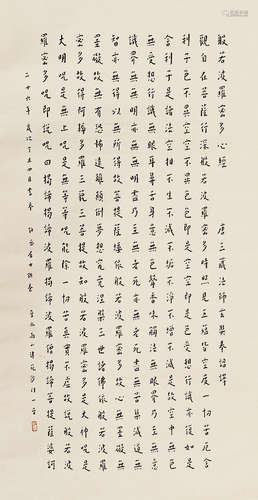 般若波羅蜜多心經 唐三藏法師玄奘奉詔譯
觀自在菩薩行深般若波羅蜜多時照見五蘊皆空度一切苦厄舍
利子色不異空空不異色色即是空空即是色受想行識亦復如是
舍利子是諸法空相不生不滅不垢不淨不增不減是故空中無色
無受想行識無眼耳鼻舌身意無色聲香味觸法無眼界乃至無意
識界無無明亦無無明盡乃至無老死亦無老死盡無苦集滅道無
智亦無得以無所得故菩提薩埵依般若波羅蜜多故心無罣礙無
罣礙故無有恐怖遠離顛倒夢想究竟涅槃三世諸佛依般若波羅
蜜多故得阿耨多羅三藐三菩提故知般若波羅蜜多是大神咒是
大明咒是無上咒是無等等咒能除一切苦真實不虛故說般若波
羅蜜多咒即說咒曰揭諦揭諦波羅揭諦波羅僧揭諦菩提薩婆訶
二十六年歲次丁丑四月書奉